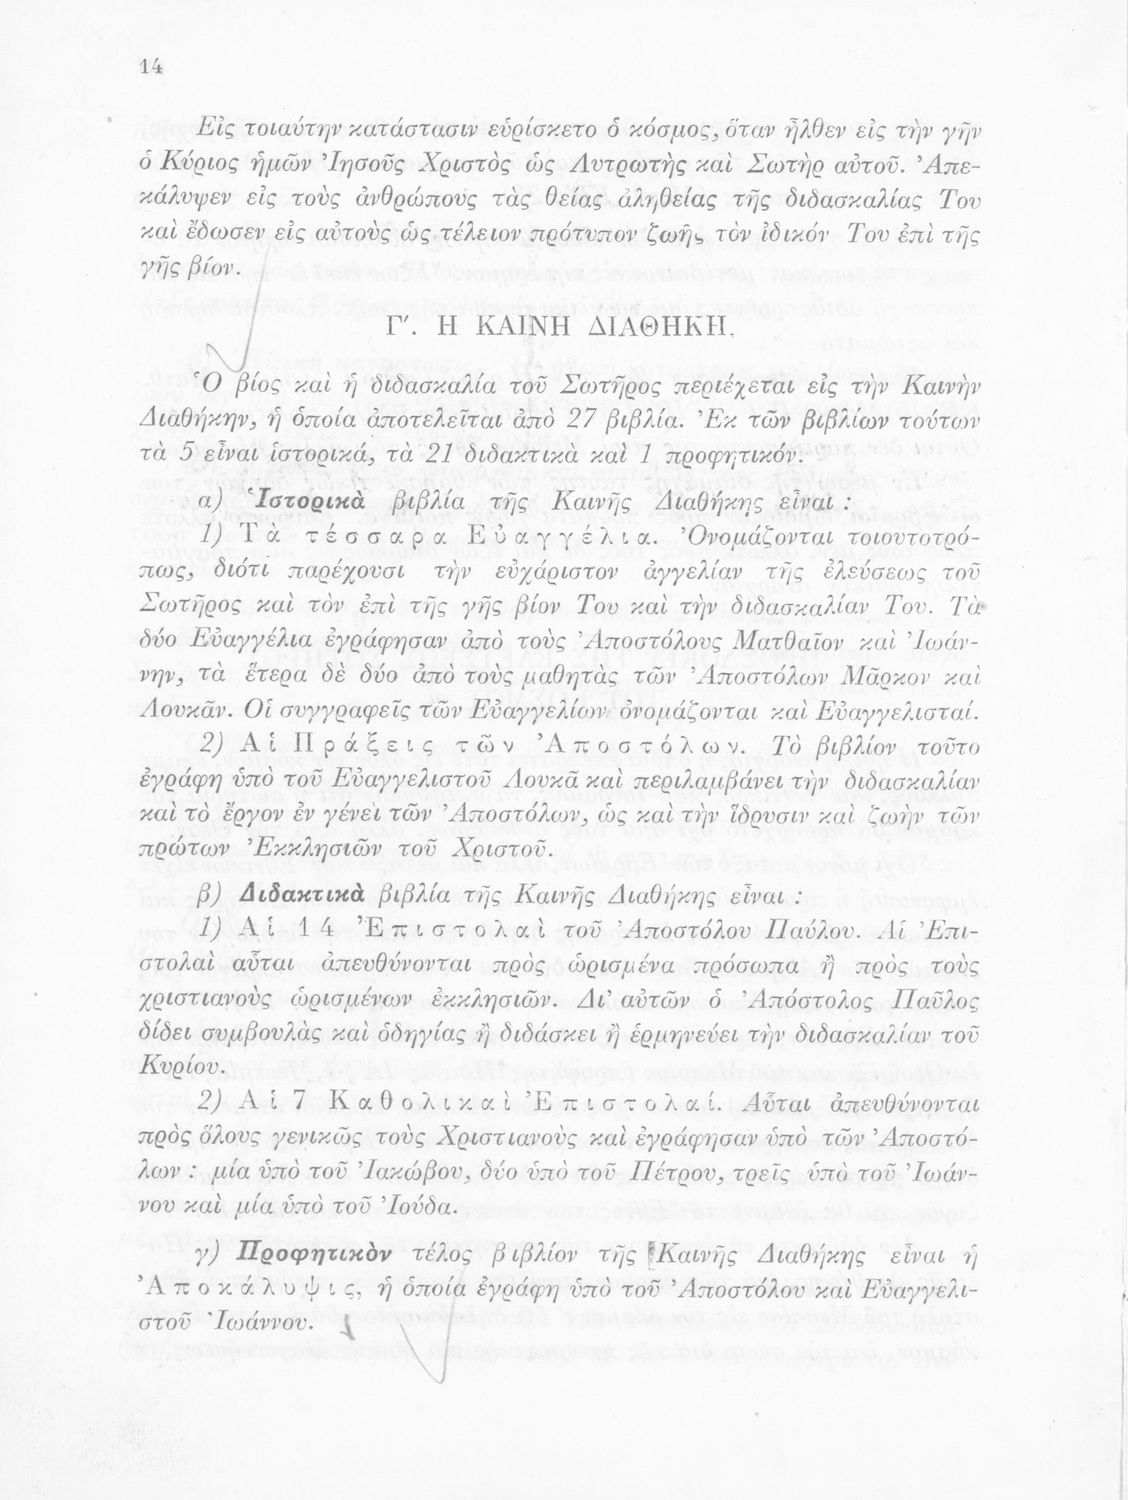 14
Εἰς τοιαύτην κατάστασιν εὑρίσκετο ὁ κόσμος, ὅταν ἦλθεν εἰς τὴν γῆν
ὁ Κύριος ἡμῶν Ἰησοῦς Χριστὸς ὡς Λυτρωτὴς καὶ Σωτὴρ αὐτοῦ. Ἀπε-
κάλυψεν εἰς τοὺς ἀνθρώπους τὰς θείας ἀληθείας τῆς διδασκαλίας Του
καὶ ἔδωσεν εἰς αὐτοὺς ὡς τέλειον πρότυπον ζωῆς τὸν ἰδικόν Του ἐπὶ τῆς
γῆς βίον.
Γ'. Η ΚΑΙΝΗ ΔΙΑΘΗΚΗ.
Ὁ βίος καὶ ἡ διδασκαλία τοῦ Σωτῆρος περιέχεται εἰς τὴν Καινὴν
Διαθήκην, ἡ ὁποία ἀποτελεῖται ἀπὸ 27 βιβλία. Ἐκ τῶν βιβλίων τούτων
τὰ 5 εἶναι ἱστορικά, τὰ 21 διδακτικὰ καὶ 1 προφητικόν.
α) Ἱστορικὰ βιβλία τῆς Καινῆς Διαθήκης εἶναι :
1) Τὰ τέσσαρα Εὐαγγέλια. Ὀνομάζονται τοιουτοτρό-
πως, διότι παρέχουσι τὴν εὐχάριστον ἀγγελίαν τῆς ἐλεύσεως τοῦ
Σωτῆρος καὶ τὸν ἐπὶ τῆς γῆς βίον Του καὶ τὴν διδασκαλίαν Του. Τὰ
δύο Εὐαγγέλια ἐγράφησαν ἀπὸ τοὺς Ἀποστόλους Ματθαῖον καὶ Ἰωάν-
νην, τὰ ἕτερα δὲ δύο ἀπὸ τοὺς μαθητὰς τῶν Ἀποστόλων Μᾶρκον καὶ
Λουκᾶν. Οἱ συγγραφεῖς τῶν Εὐαγγελίων ὀνομάζονται καὶ Εὐαγγελισταί.
2) Αἱ Πράξεις τῶν Ἀποστόλων. Τὸ βιβλίον τοῦτο
ἐγράφη ὑπὸ τοῦ Εὐαγγελιστοῦ Λουκᾶ καὶ περιλαμβάνει τὴν διδασκαλίαν
καὶ τὸ ἔργον ἐν γένει τῶν Ἀποστόλων, ὡς καὶ τὴν ἵδρυσιν καὶ ζωὴν τῶν
πρώτων Ἐκκλησιῶν τοῦ Χριστοῦ.
β) Διδακτικὰ βιβλία τῆς Καινῆς Διαθήκης εἶναι :
1) Αἱ 14 Ἐπιστολαὶ τοῦ Ἀποστόλου Παύλου. Αἱ Ἐπι-
στολαὶ αὗται ἀπευθύνονται πρὸς ὡρισμένα πρόσωπα ἢ πρὸς τοὺς
χριστιανοὺς ὡρισμένων ἐκκλησιῶν. Δι' αὐτῶν ὁ Ἀπόστολος Παῦλος
δίδει συμβουλὰς καὶ ὁδηγίας ἢ διδάσκει ἢ ἑρμηνεύει τὴν διδασκαλίαν τοῦ
Κυρίου.
2) Αἱ 7 Καθολικαὶ Ἐπιστολαί. Αὗται ἀπευθύνονται
πρὸς ὅλους γενικῶς τοὺς Χριστιανοὺς καὶ ἐγράφησαν ὑπὸ τῶν Ἀποστό-
λων : μία ὑπὸ τοῦ Ἰακώβου, δύο ὑπὸ τοῦ Πέτρου, τρεῖς ὑπὸ τοῦ Ἰωάν-
νου καὶ μία ὑπὸ τοῦ Ἰούδα.
γ) Προφητικὸν τέλος βιβλίον τῆς Καινῆς Διαθήκης εἶναι ἡ
Ἀποκάλυψις, ἡ ὁποία ἐγράφη ὑπὸ τοῦ Ἀποστόλου καὶ Εὐαγγελι-
στοῦ Ἰωάννου.